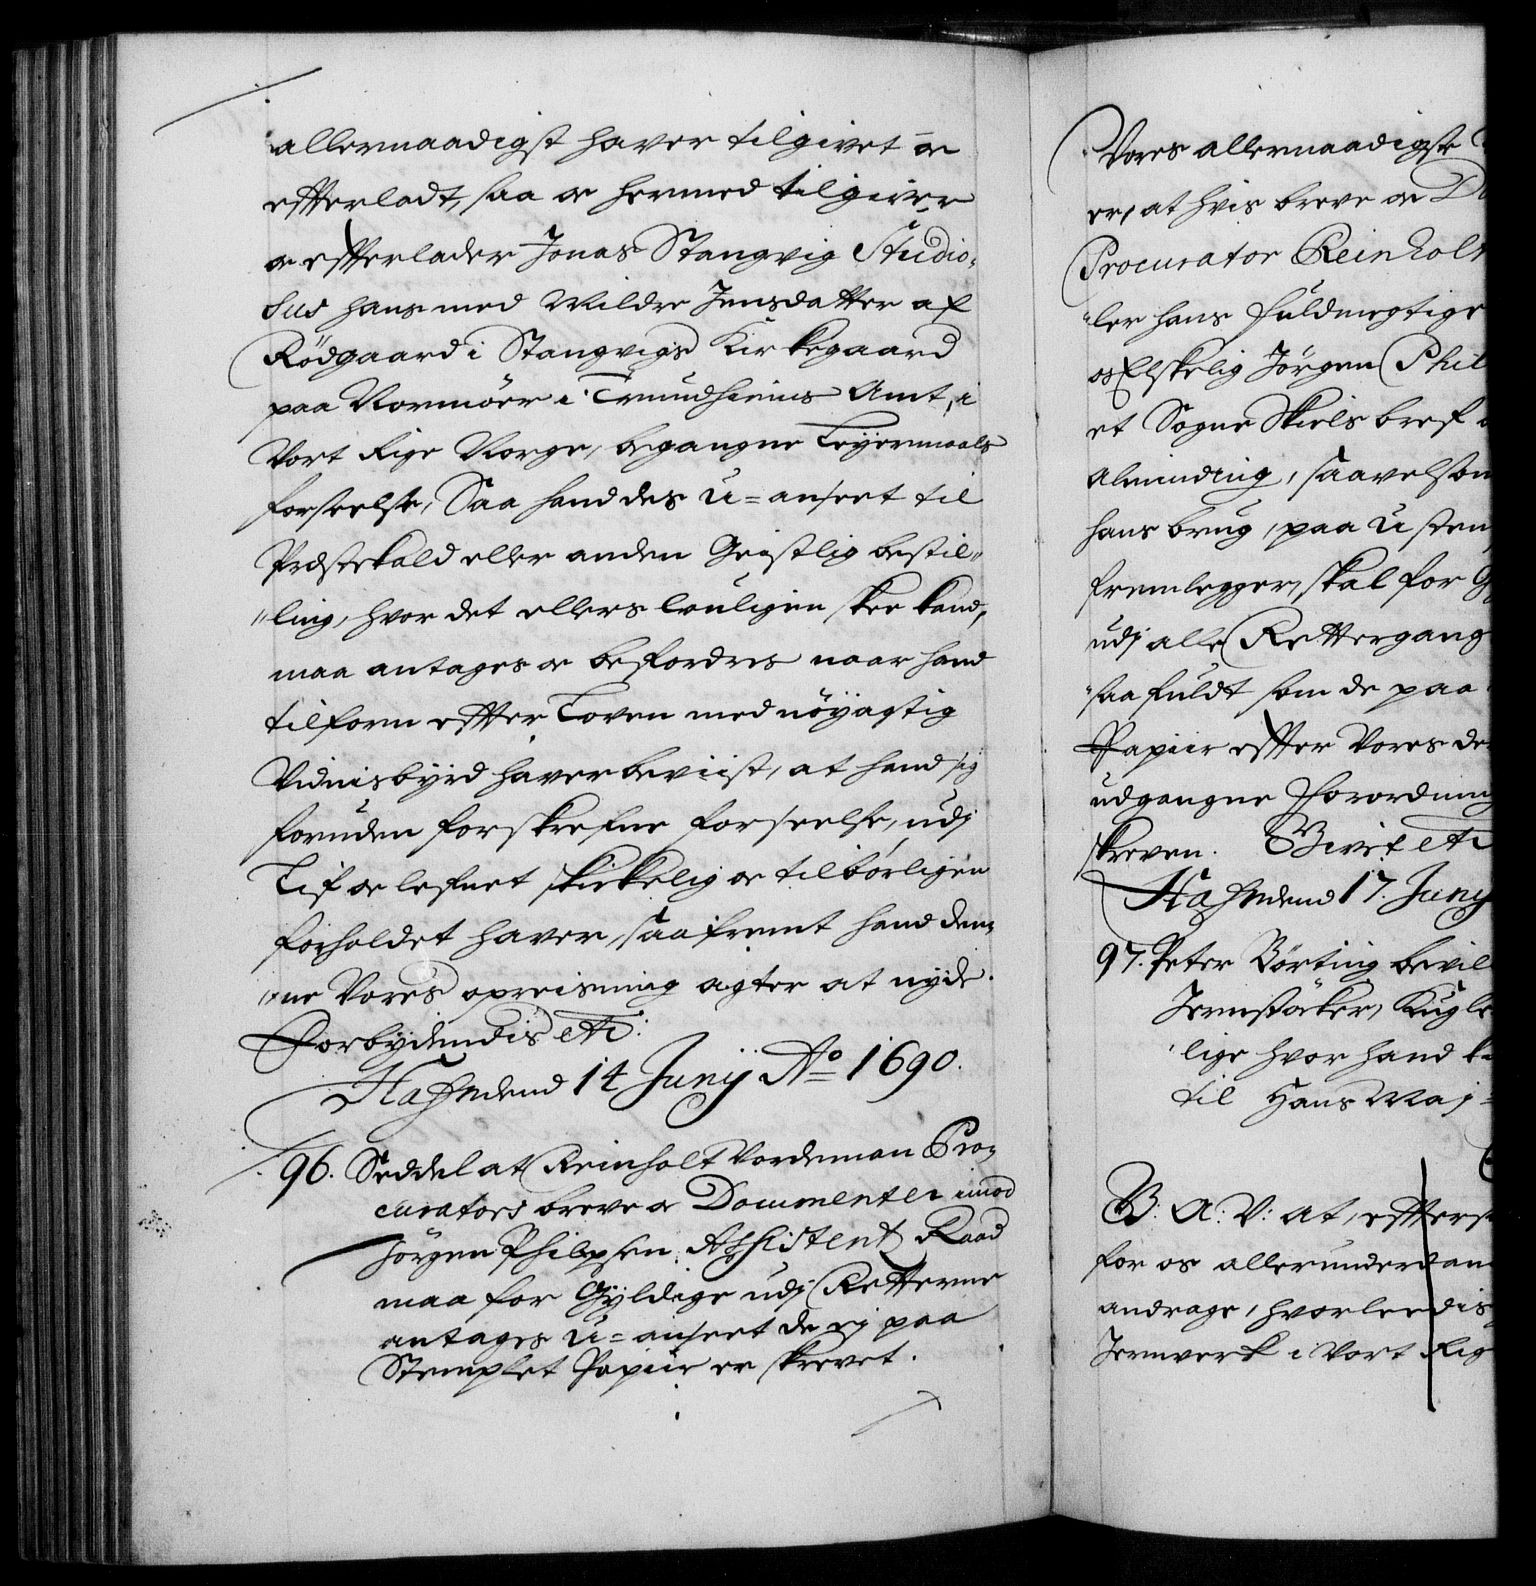 allernaadigst haver tilgivet oc
efterladt, saa oc hermed tilgiver
oc efterlader Jonas Stangvig Studio-
sus hans med Mildre Jensdatter af
Rödgaard i Stangvigs Kirkegaard
paa Normöer i Trundhiems Amt, i
Vort Rige Norge, begangne Leyermaals
forseelse, Saa hand des u=anseet til
Præstekald eller anden Geistlig bestil-
ling, hvor det ellers louligen skee kand,
maa antages oc befordres naar hand
tilforn efter Loven med nöyagtig
Vidnisbyrd haver beviist, at hand sig
foruden forskrefne forseelse, udj
Lif oc lefnet skickelig oc tilbörligen
forholdet haver, saafremt hand den-
ne Vores opreisning agter at nyde.
Forbydendis etc:
Hafn den 14 Junij Ao 1690.
96. Seddel at Reinholt Vordeman Pro-
curators breve oc Documenter imod
Jörgen Philipsen Assistent Raad
maa for Gyldige udj Retterne
antages u=anseet de ej paa
Stemplet Papiir er skrevet.
Vores allernaadigste
er, at hvis breve oc
Procurator Reinholt
ler hans fuldmegtige
os Elskelig Jörgen Phil
et Sogne Skiels bref
Alminding, saavelsom
hans brug, paa u stem
fremlegger, skal for
udj alle Rettergang
saa fuldt som de paa
Papiir efter Vores der
udgangne Forordning
skreven. Befrit etc
Hafn den 17. Junij
97. Peter Börting bevil
Jernstöcker, Kugle
lige hvor hand ka
til Hans Maj
B: A: V: at, efters
for os allerunderdan
andrage, hvorleedis
Jernverk i Vort Rig